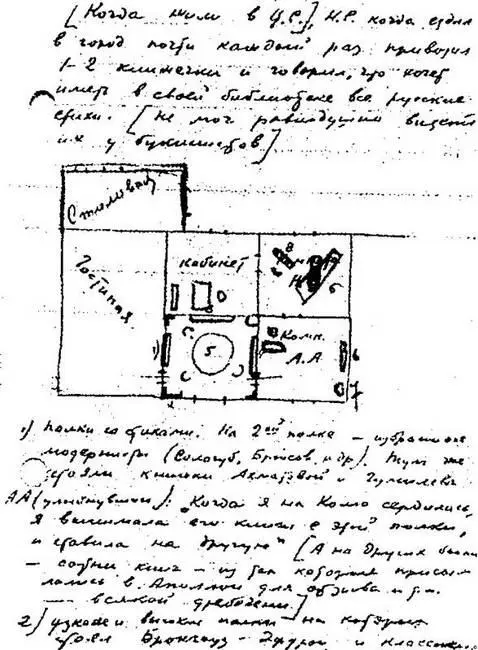 [Когда жили в Ц.С.], Н.Г. когда ездил
в город почти каждый раз привозил
1-2 книжечки и говорил, что хочет
иметь в своей библиотеке все русские
стихи. [Не мог равнодушно видеть
их у букинистов].
Столовая
Гостиная
кабинет
8
6
Н
5
1)
5.
Комн.
А.А
6
7
1) полки со стихами. На 2ой полке — избранные
модернисты (Сологуб, Брюсов и др). Тут же
стояли книжки Ахматовой и Гумилева
АА (улыбнувшись): "Когда я на Колю сердилась,
я вынимала его книги с этой полки,
и ставила на другую" [А на других были
— сотни книг — из тех которые присы-
лались в Аполлон для отзыва и т.п.
— всякой дребедени.]
2) узкие и высокие полки на которых
стоял Брокгауз-Эфрон и классики